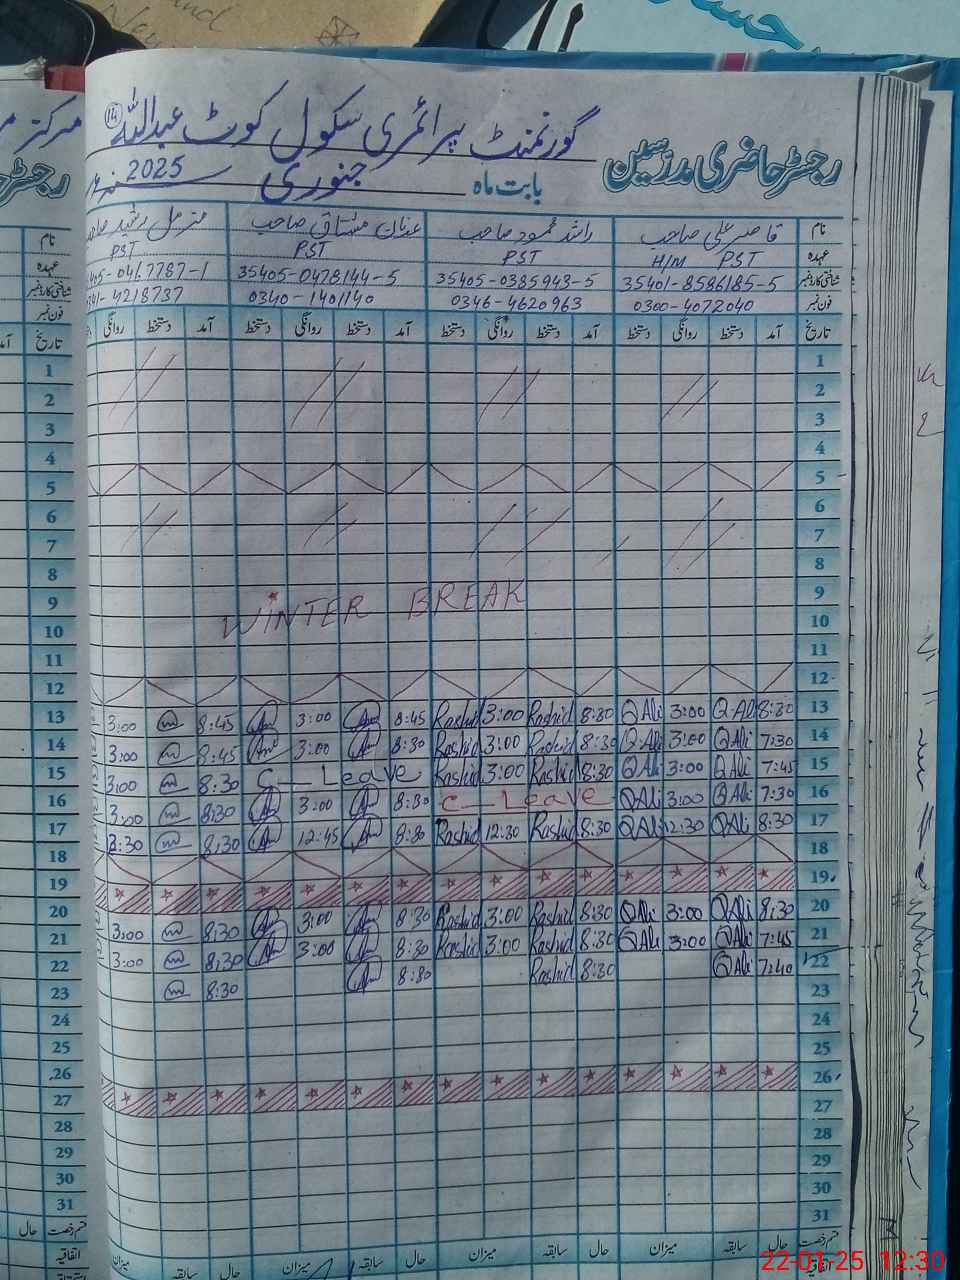 گورنمنٹ پرائمری سکول کوٹ عبداللہ 14
رجسٹر حاضری مدرسین بابت ماہ جنوری 2025
نام قاصر علی صاحب راشد محمود صاحب عدنان مشتاق صاحب مزمل رشید
عہدہ H/M PST PST PST PST
شناختی کارڈ نمبر 35401-8586185-5 35405-0385943-5 35405-0478144-5
فون نمبر 0300-4072040 0346-4620963 0340-1401140 4218737
تاریخ آمد دستخط روانگی دستخط آمد دستخط روانگی دستخط آمد دستخط روانگی دستخط آمد دستخط روانگی
1
2
3
4
5
6
7
8
9
WINTER BREAK
10
11
12
13 8:30 Q Ali 3:00 Q Ali 8:30 Rashid 3:00 Rashid 8:45 3:00 8:45 3:00
14 7:30 Q Ali 3:00 Q Ali 8:30 Rashid 3:00 Rashid 8:30 3:00 8:45 3:00
15 7:45 Q Ali 3:00 Q Ali 8:30 Rashid 3:00 Rashid C — Leave 8:30 3:00
16 7:30 Q Ali 3:00 Q Ali C — Leave 8:30 3:00 8:30 3:00
17 8:30 Q Ali 12:30 Q Ali 8:30 Rashid 12:30 Rashid 8:30 12:45 8:30
18
19
20 8:30 Q Ali 3:00 Q Ali 8:30 Rashid 3:00 Rashid 8:30 3:00 8:30 3:00
21 7:45 Q Ali 3:00 Q Ali 8:30 Rashid 3:00 Rashid 8:30 3:00 8:30 3:00
22 7:40 Q Ali 8:30 Rashid 8:30 8:30
23
24
25
26
27
28
29
30
31
قسم رخصت حال سابقہ میزان حال سابقہ میزان حال سابقہ میزان حال سابقہ میزان
اتفاقیہ
22-01-25 12:30